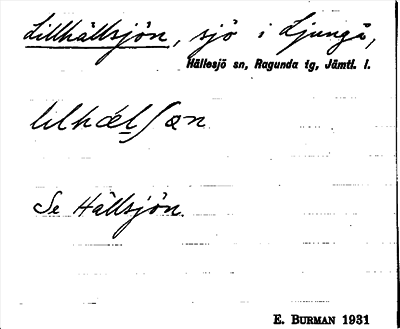 Lillhällsjön, sjö i Ljungå,
Hällesjö sn, Ragunda tg, Jämtl. l.
lilhæ̀lʃæn
Se Hällsjön.
E. BURMAN 1931